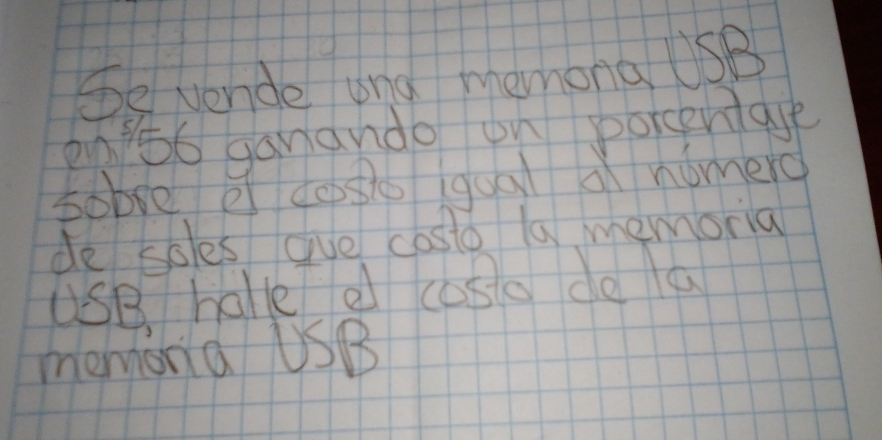 Se vende una memoria USB
en S/56 ganando un porcentaje
sobre el costo igual al número
de soles que costo la memoria
USB, halle el costo de la
memoria USB